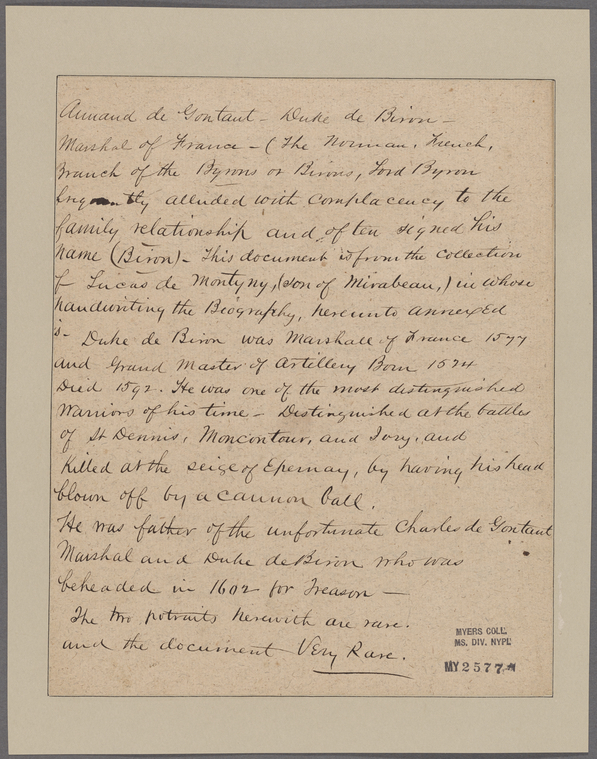 Armand de Gontaut - Duke de Biron -
Marshal of France - (The Norman, French,
Branch of the Byrons or Birons, Lord Byron
alluded with complacency to the
family relationship and often signed his
name (Biron) - This document is from the collection
of Lucas de Montyny, (son of Mirabeau,) in whose
handwriting the Biography, hereunto annexed
is - Duke de Biron was Marshall of France 1577
and Grand Master of Artillery Born 1524
Died 1592. He was one of the most distinguished
Warriors of his time - Distinguished at the battles
of St Dennis, Moncontour, and Ivry, and
Killed at the seige of Epernay, by having his head
blown off by a cannon ball.
He was father of the unfortunate Charles de Gontaut
Marshal and Duke de Biron who was
beheaded in 1602 for Treason -
The two potraits herewith are rare.
and the document Very Rare.
MYERS COLL.
MS. DIV. NYPL
MY 2577